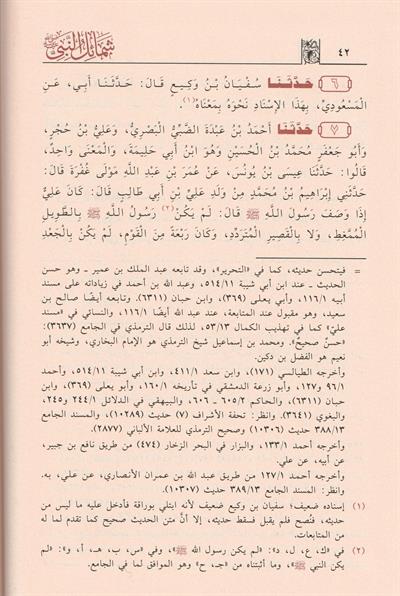 ٤٢
شمائل النبي ﷺ
٦ حَدَّثَنَا سُفْيَانُ بْنُ وَكِيعٍ قَالَ: حَدَّثَنَا أَبِي، عَنِ
الْمَسْعُودِيِّ، بِهَذَا الإِسْنَادِ نَحْوَهُ بِمَعْنَاهُ(١).
٧ حَدَّثَنَا أَحْمَدُ بْنُ عَبْدَةَ الضَّبِّيُّ الْبَصْرِيُّ، وَعَلِيُّ بْنُ حُجْرٍ،
وَأَبُو جَعْفَرٍ مُحَمَّدُ بْنُ الْحُسَيْنِ وَهُوَ ابْنُ أَبِي حَلِيمَةَ، وَالْمَعْنَى وَاحِدٌ،
قَالُوا: حَدَّثَنَا عِيسَى بْنُ يُونُسَ، عَنْ عُمَرَ بْنِ عَبْدِ اللَّهِ مَوْلَى غُفْرَةَ قَالَ:
حَدَّثَنِي إِبْرَاهِيمُ بْنُ مُحَمَّدٍ مِنْ وَلَدِ عَلِيِّ بْنِ أَبِي طَالِبٍ قَالَ: كَانَ عَلِيٌّ
إِذَا وَصَفَ رَسُولَ اللَّهِ ﷺ قَالَ: لَمْ يَكُنْ(٢) رَسُولُ اللَّهِ ﷺ بِالطَّوِيلِ
الْمُمَّغِطِ، وَلَا بِالْقَصِيرِ الْمُتَرَدِّدِ، وَكَانَ رَبْعَةً مِنَ الْقَوْمِ، لَمْ يَكُنْ بِالْجَعْدِ
= فيتحسن حديثه، كما في «التحرير»، وقد تابعه عبد الملك بن عمير ـ وهو حسن
الحديث ـ عند ابن أبي شيبة ٥١٤/١١، وعبد الله بن أحمد في زياداته على مسند
أبيه ١١٦/١، وأبي يعلى (٣٦٩)، وابن حبان (٦٣١١). وتابعه أيضًا صالح بن
سعيد، وهو مقبول عند المتابعة، عند عبد الله أيضًا ١١٦/١، والنسائي في «مسند
علي» كما في تهذيب الكمال ٥٣/١٣، لذلك قال الترمذي في الجامع (٣٦٣٧):
«حسنٌ صحيحٌ». ومحمد بن إسماعيل شيخ الترمذي هو الإمام البخاري، وشيخه أبو
نعيم هو الفضل بن دكين.
وأخرجه الطيالسي (١٧١)، وابن سعد ٤١١/١، وابن أبي شيبة ٥١٤/١١، وأحمد
٩٦/١ و١٢٧، وأبو زرعة الدمشقي في تأريخه ١٦٠/١، وأبو يعلى (٣٦٩)، وابن
حبان (٦٣١١)، والحاكم ٦٠٥/٢ ـ ٦٠٦، والبيهقي في الدلائل ٢٤٤/١ و٢٤٥،
والبغوي (٣٦٤١). وانظر: تحفة الأشراف (٧) حديث (١٠٢٨٩)، والمسند الجامع
٣٨٨/١٣ حديث (١٠٣٠٦)، وصحيح الترمذي للعلامة الألباني (٢٨٧٧).
وأخرجه أحمد ١٣٣/١، والبزار في البحر الزخار (٤٧٤) من طريق نافع بن جبير،
عن أبيه، عن علي.
وأخرجه أحمد ١٢٧/١ من طريق عبد الله بن عمران الأنصاري، عن علي، به.
وانظر: المسند الجامع ٣٨٩/١٣ حديث (١٠٣٠٧).
(١) إسناده ضعيف؛ سفيان بن وكيع ضعيف لأنه ابتلي بوراقة فأدخل عليه ما ليس من
حديثه، فنصح فلم يقبل فسقط حديثه، إلا أنَّ متن الحديث صحيح كما تقدم لما له
من المتابعات.
(٢) في «ك، ع، ل، د»: «لم يكن رسول الله ﷺ»، وفي «س، ب، هـ، أ، و»: «لم
يكن النبي ﷺ»، وما أثبتناه من «جـ، ح» وهو الموافق لما في الجامع.